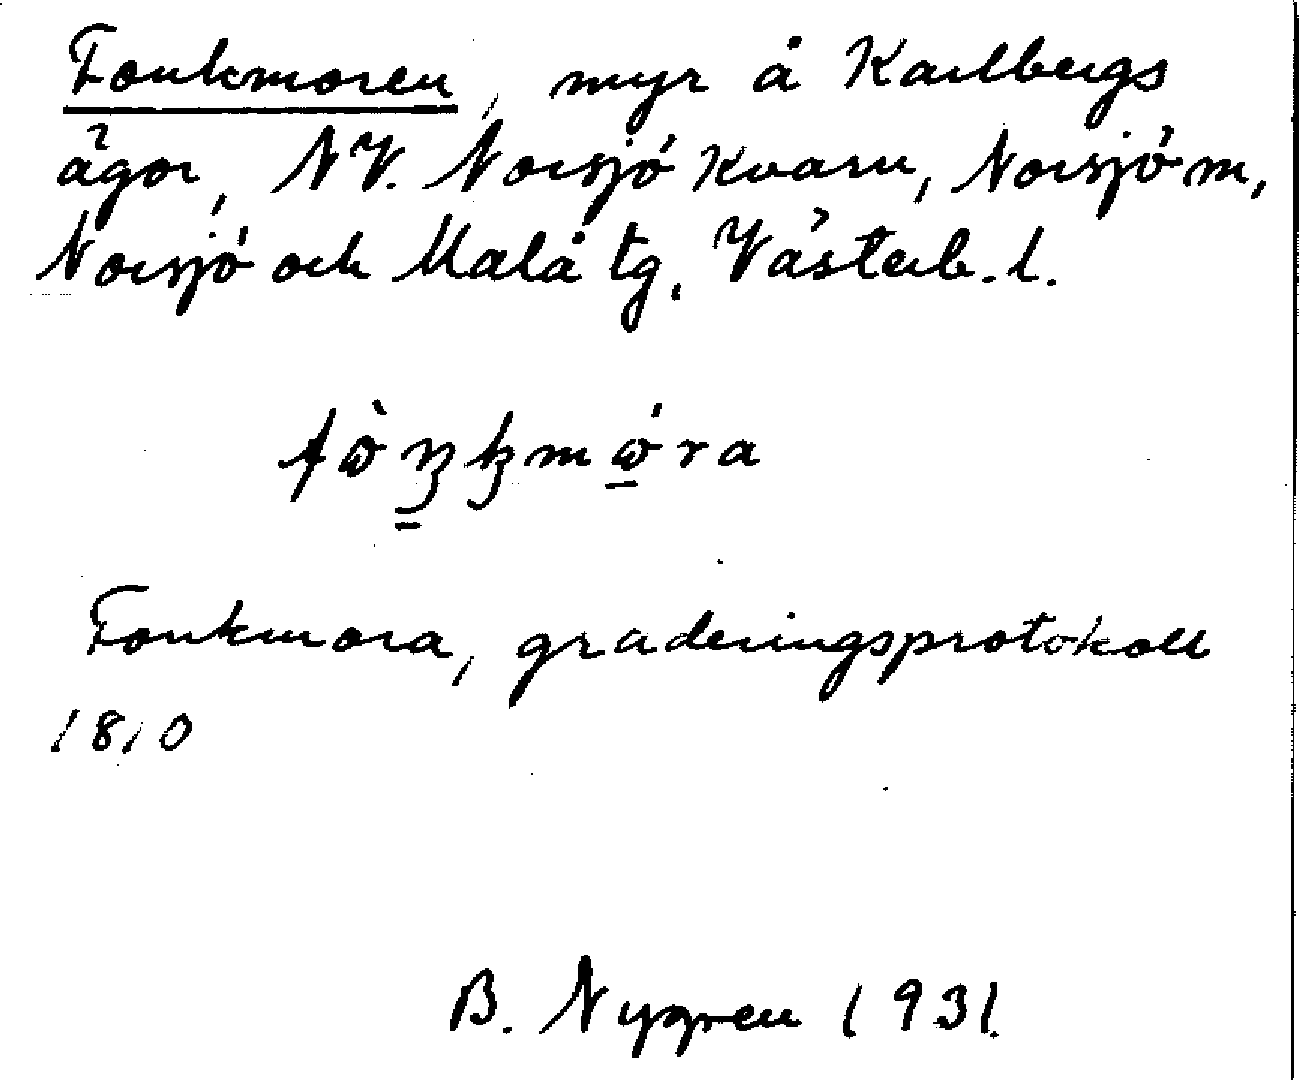 Fonkmoren, myr å Karlbergs
ägor, NV. Norsjö kvarn, Norsjö sn,
Norsjö och Malå tg, Västerb. l.
Fonkmora, graderingsprotokoll
1810
B. Nygren 1931.